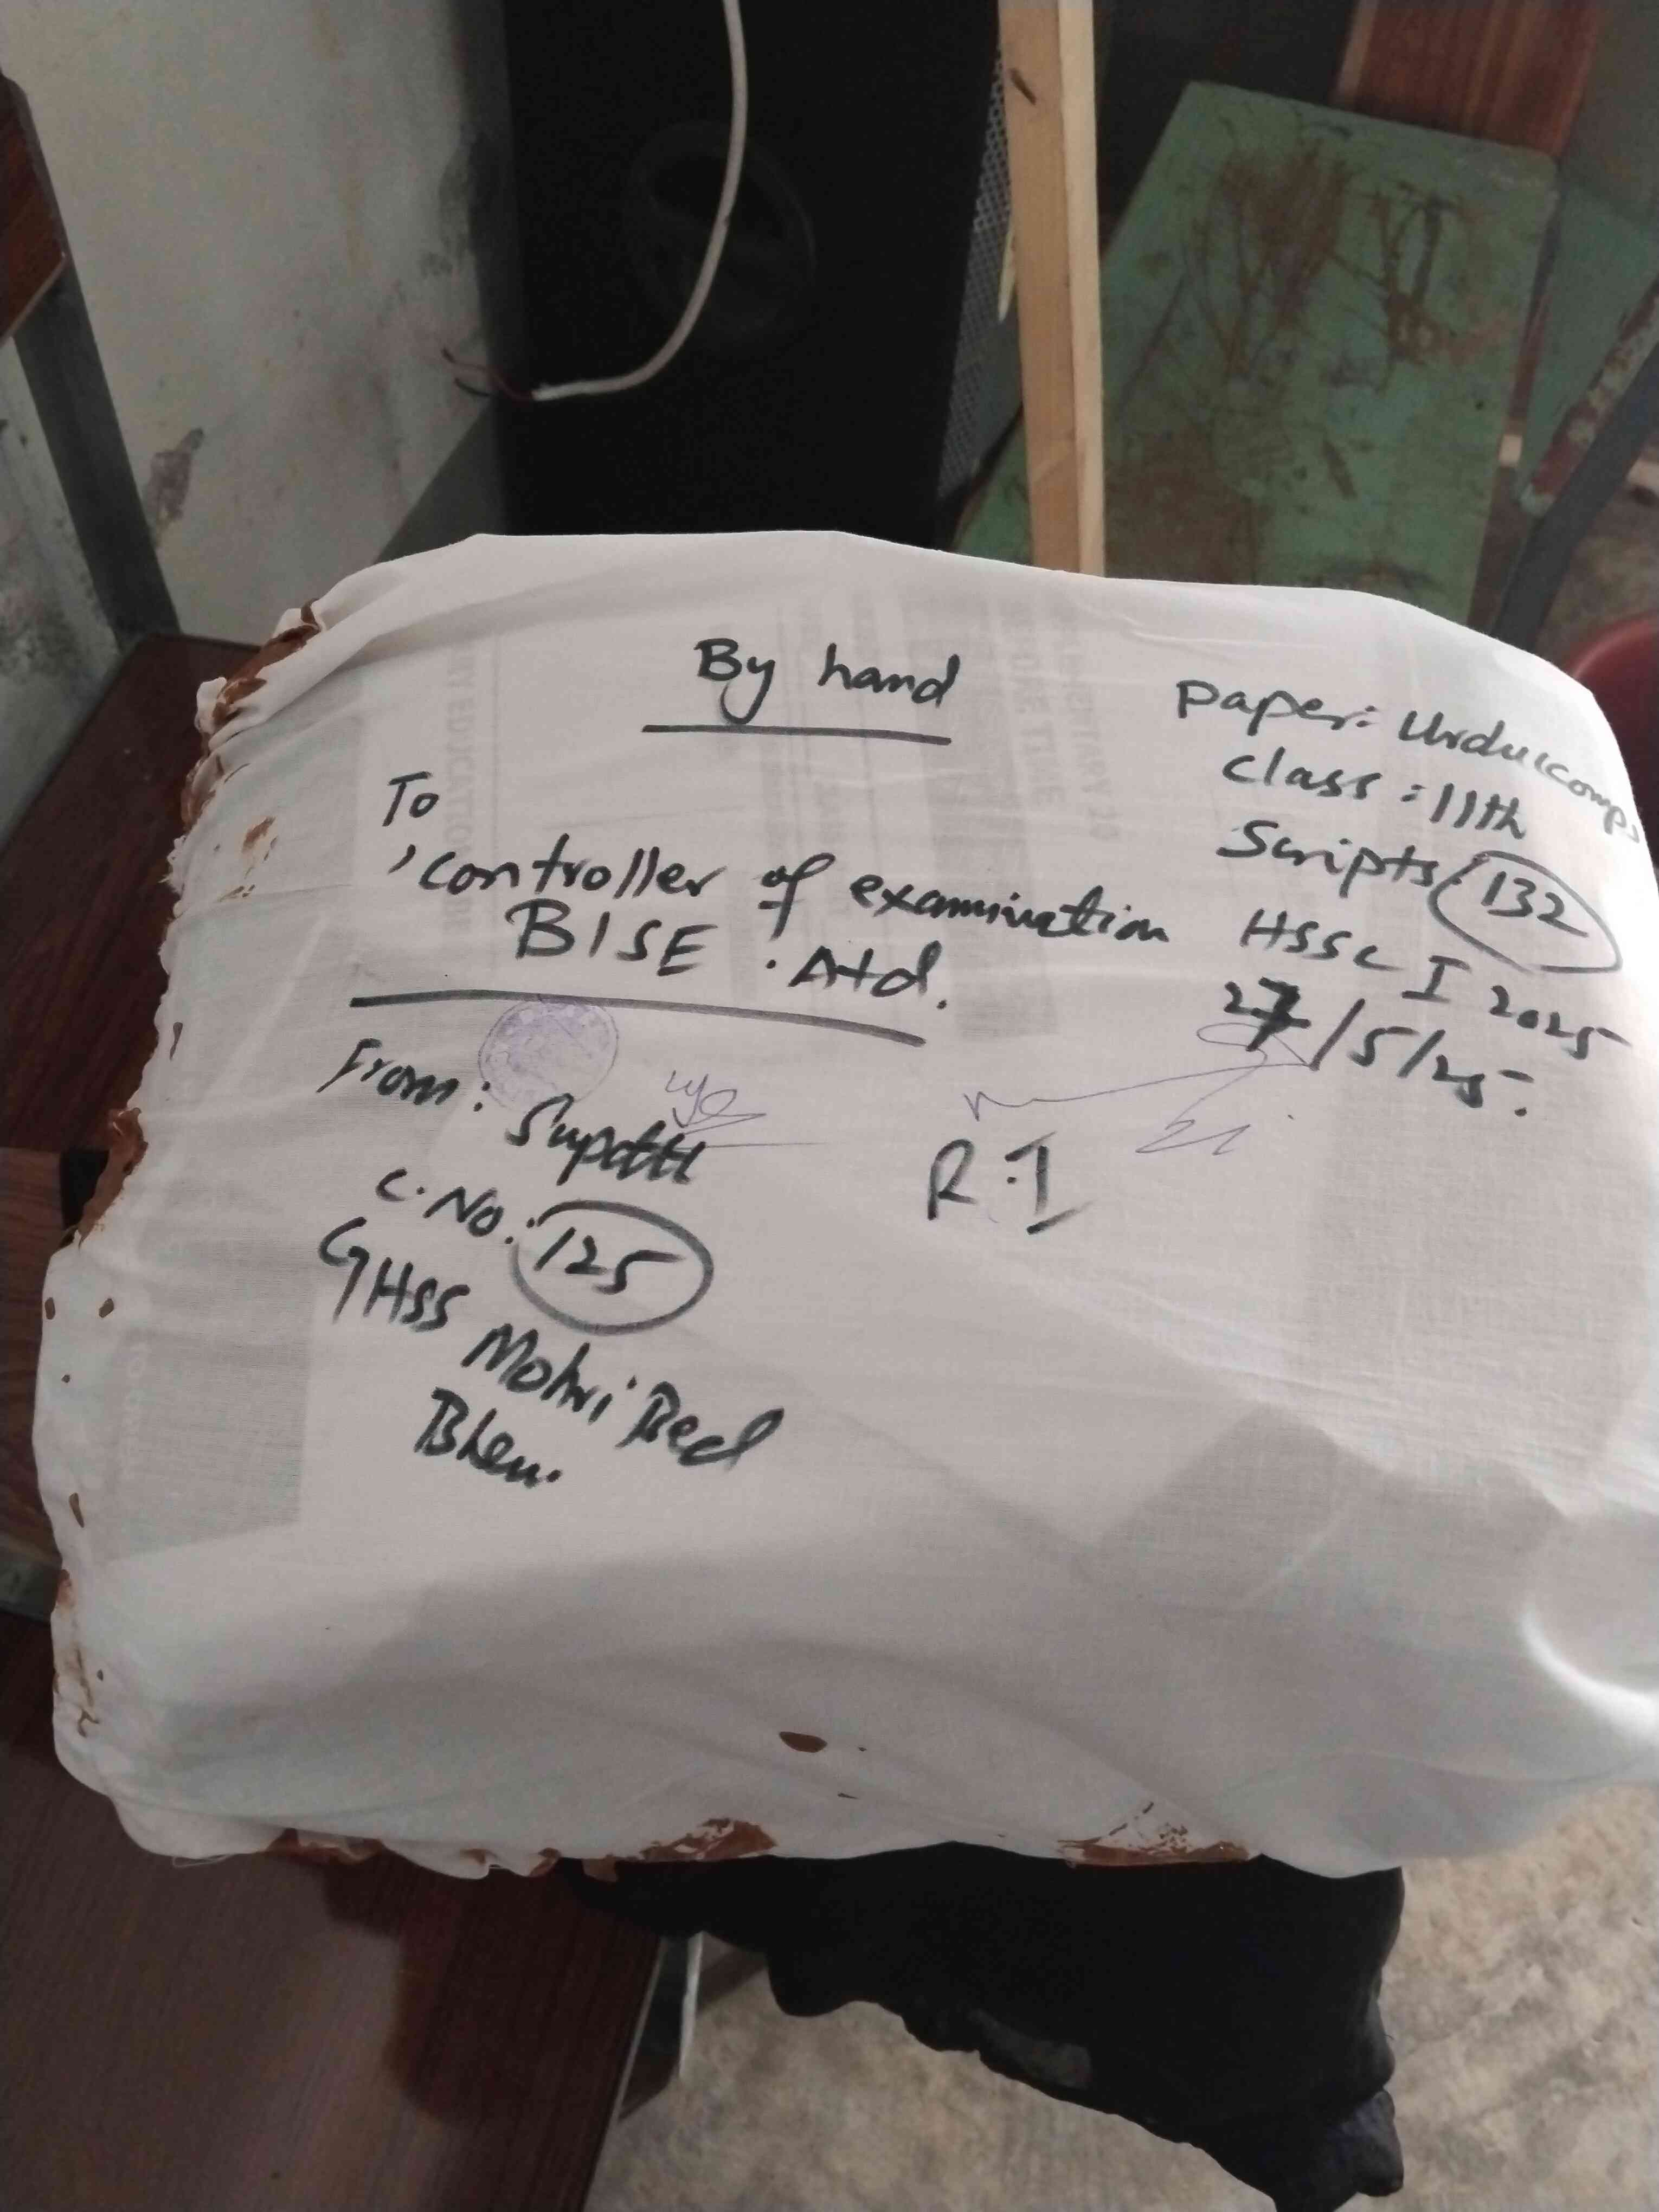 By hand
Paper: Urdu (comp)
Class: 11th
Scripts: 132
HSSC I 2025
27/5/25.
To
Controller of examination
BISE . Atd.
From: Supdtt
C. No: 125
GHSS Mohri Bed
Bhen.
R.I